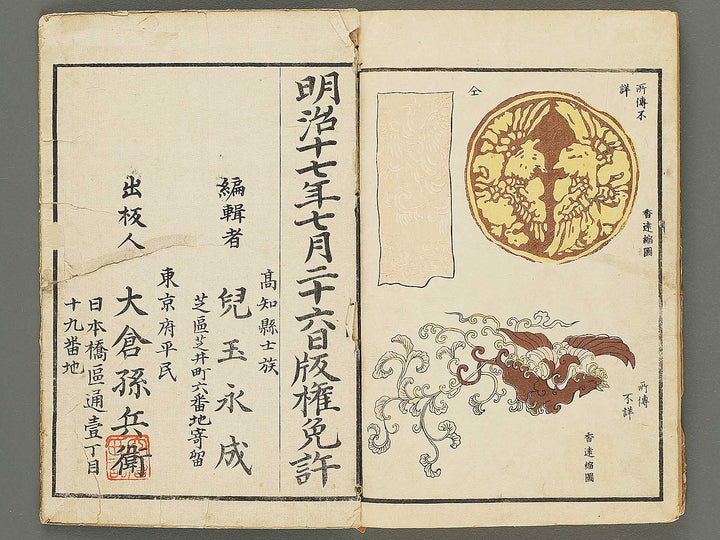 所傳不
詳
仝
香遠縮圖
所傳
不詳
香遠縮圖
明治十七年七月二十六日版權免許
高知縣士族
編輯者 兒玉永成
芝區芝井町六番地寄留
東京府平民
出板人 大倉孫兵衛
日本橋區通壹丁目
十九番地